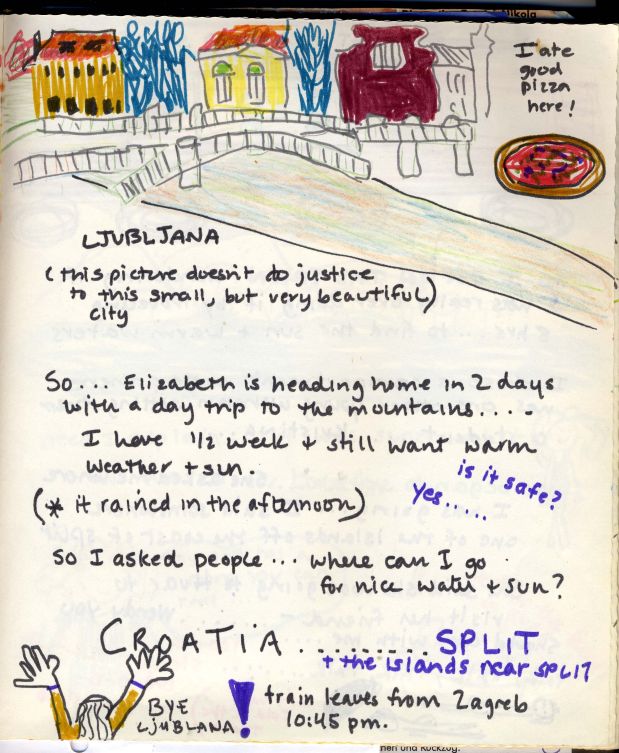 Nikola
I ate
good
pizza
here!
LJUBLJANA
(this picture doesn't do justice
to this small, but very beautiful)
city
So.... Elizabeth is heading home in 2 days
with a day trip to the mountains....
I have 1/2 week + still want warm
weather + sun.
is it safe?
yes.....
(* it rained in the afternoon)
So I asked people... where can I go
for nice water + sun?
CROATIA......... SPLIT
+ the islands near SPLIT
BYE
LJUBLANA!
train leaves from Zagreb
10:45 pm.
nen und Rückzug.